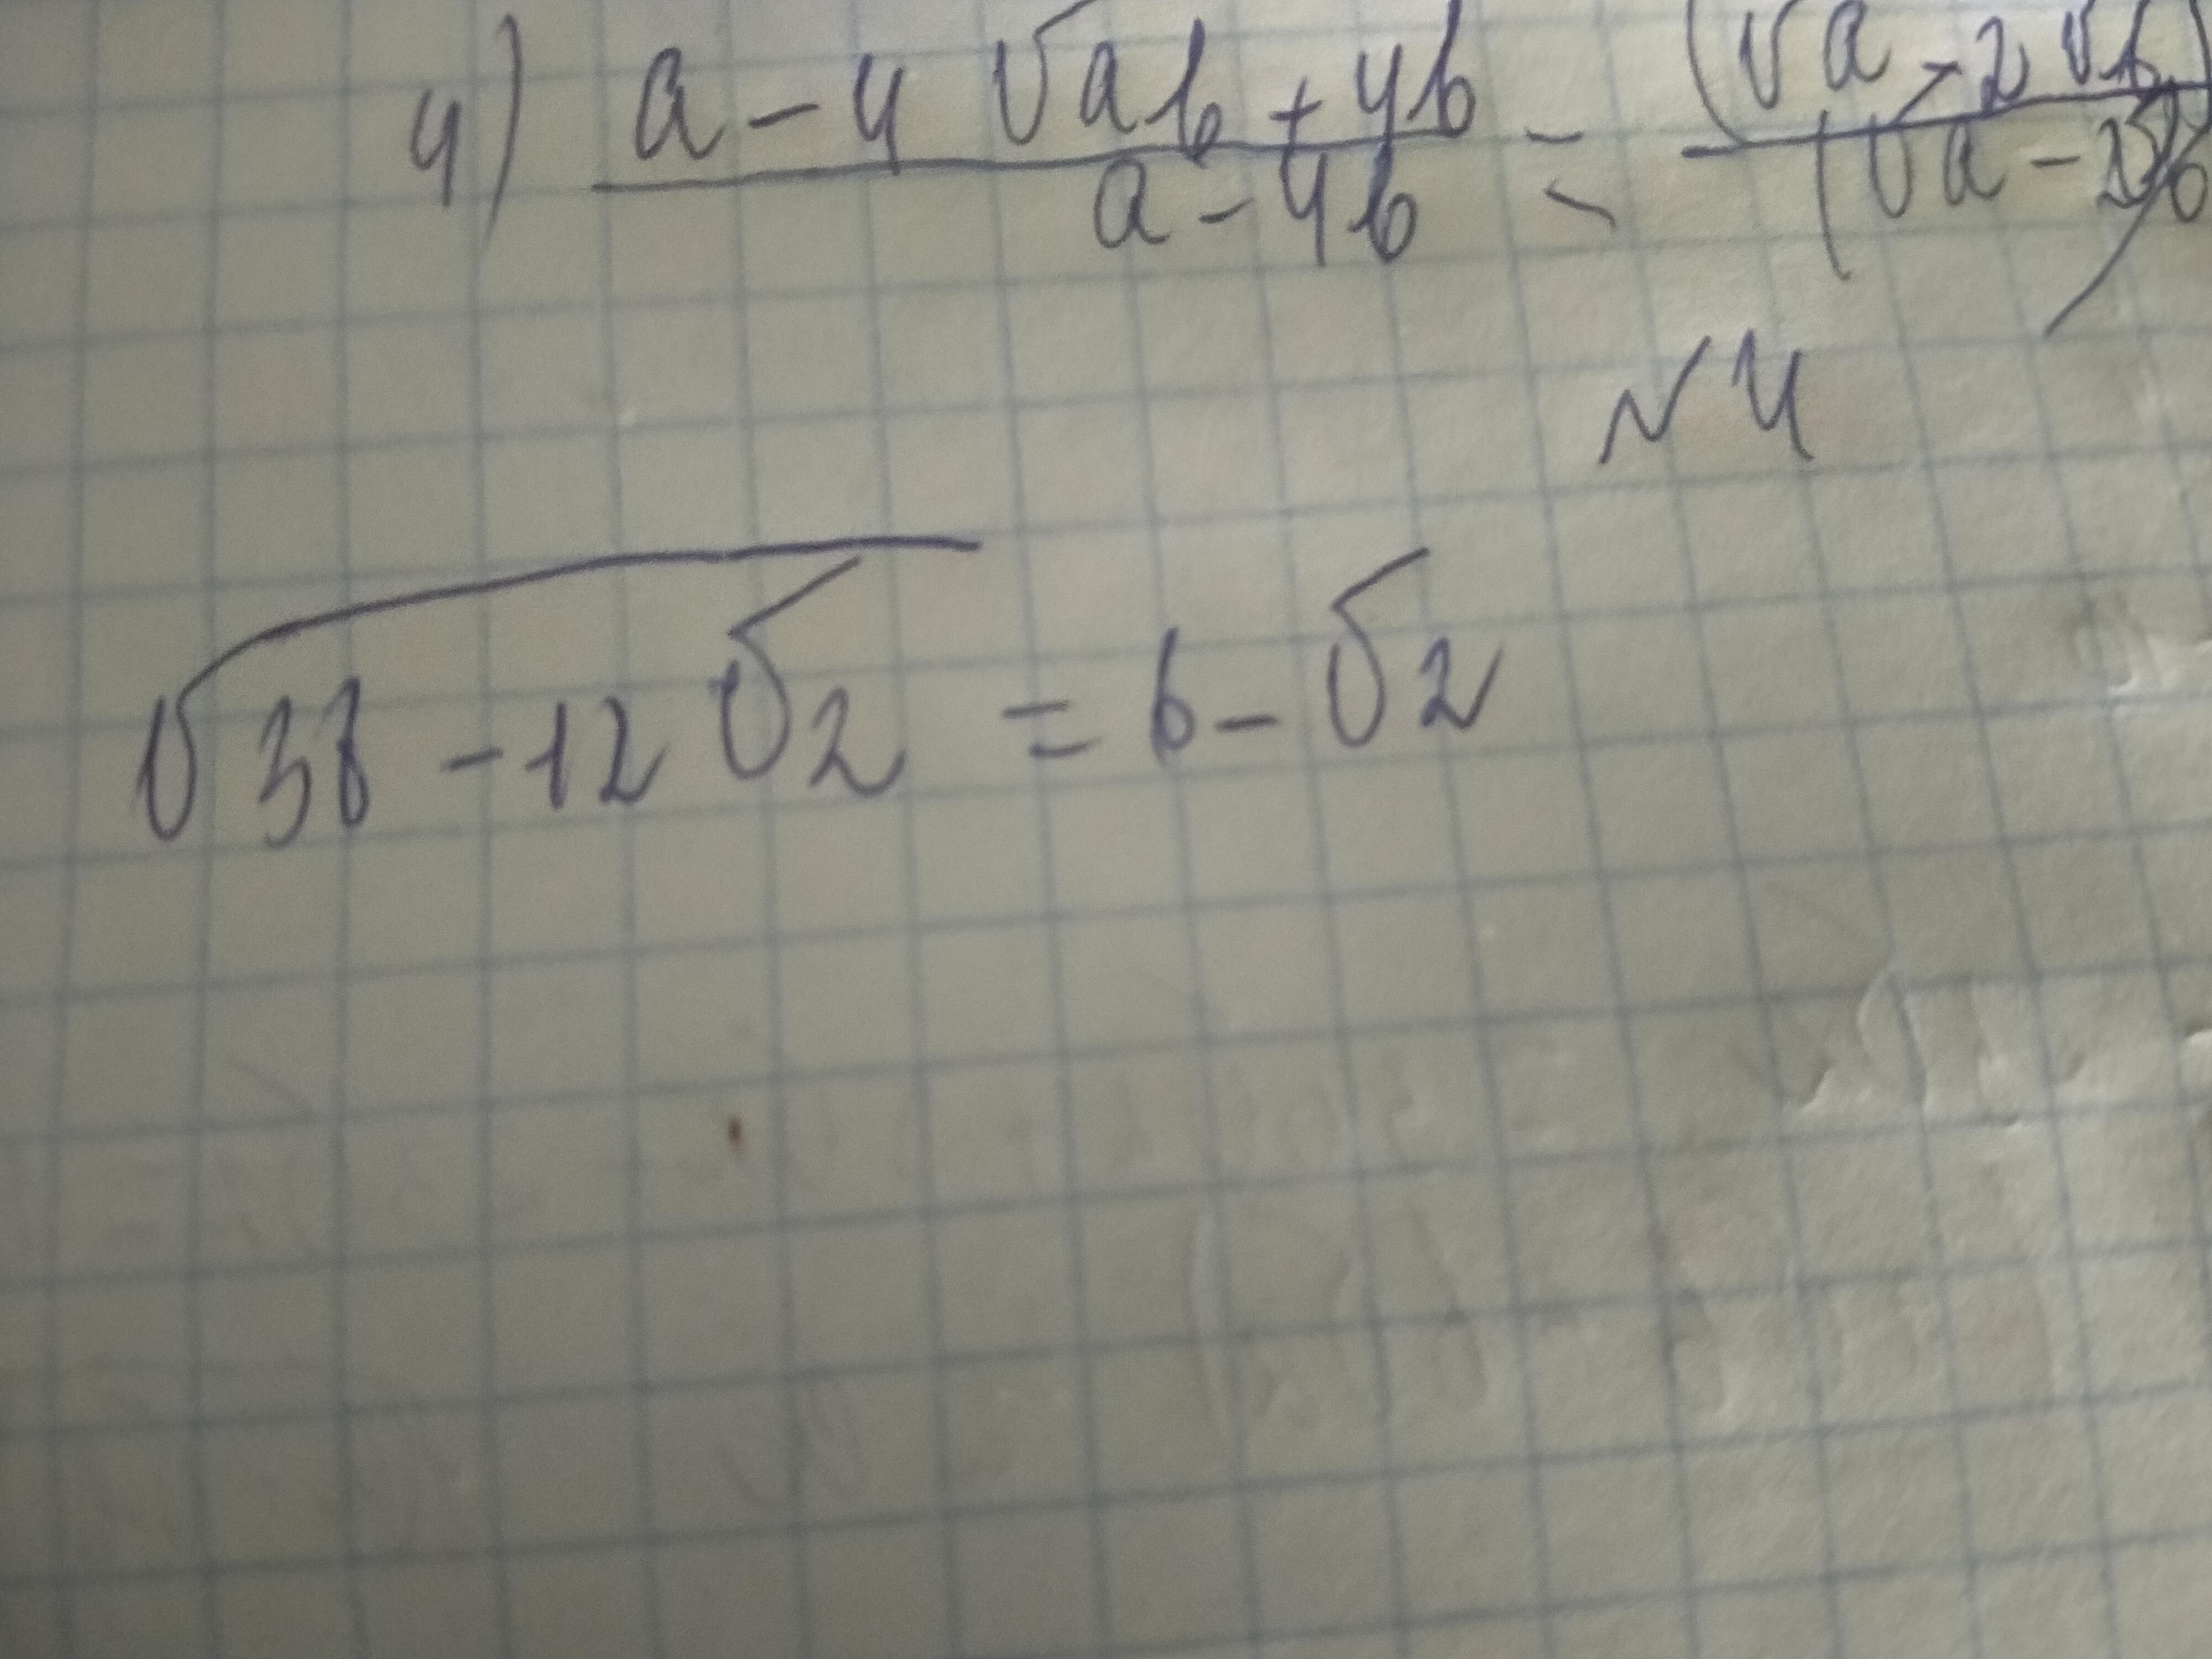 4) (a - 4√ab + 4b)/(a - 4b) = (√a - 2√b)/(√a - 2
№4
√(38 - 12√2) = 6 - √2